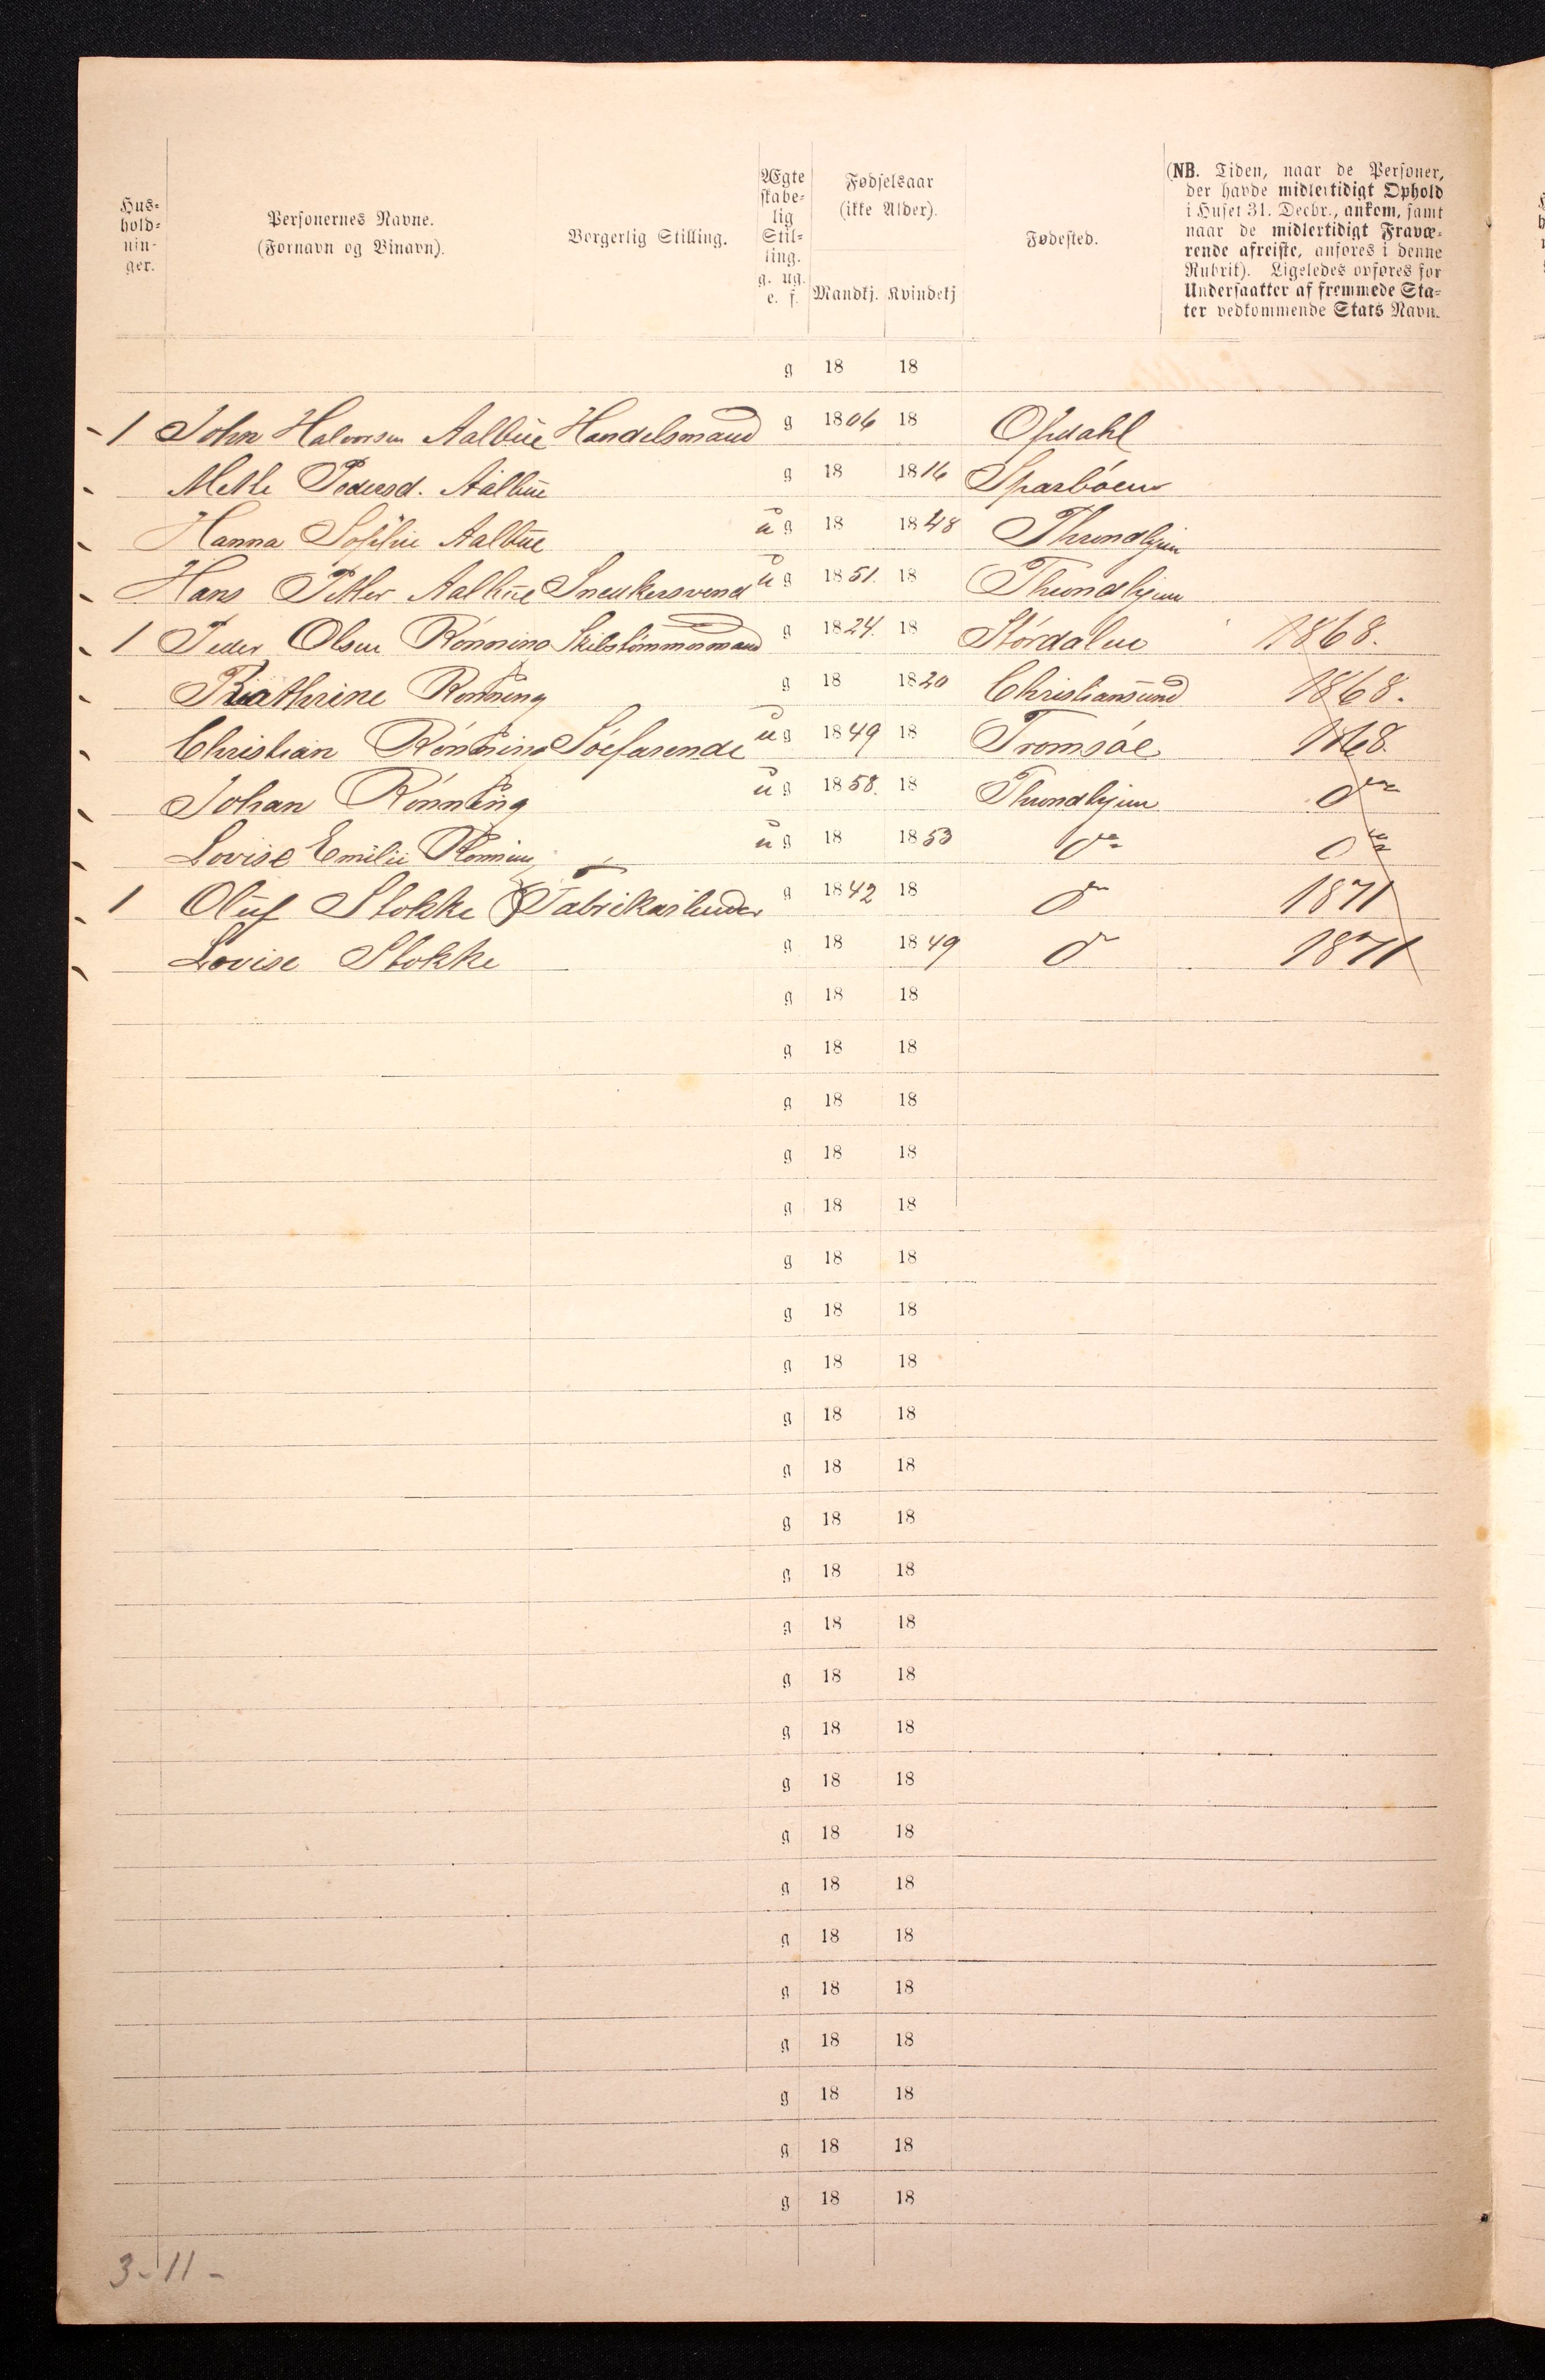 Hus-
hold-
nin-
ger.
Personernes Navne.
(Fornavn og Binavn).
Borgerlig Stilling.
Ægte
skabe-
lig
Stil-
ling.
g. ug.
e. f.
Fødselsaar
(ikke Alder).
Mandkj. Kvindekj
Fødested.
(NB. Tiden, naar de Personer,
der havde midlertidigt Ophold
i Huset 31. Decbr., ankom, samt
naar de midlertidigt Fravæ-
rende afreiste, anføres i denne
Rubrik). Ligeledes opføres for
Undersaatter af fremmede Sta-
ter vedkommende Stats Navn.
g 18 18
1 John Halvorsen Aalbue Handelsmand g 1806 18 Opdahl
Mette Pedersd. Aalbue g 18 1816 Sparbøen
Hanna Sophie Aalbue ug 18 1848 Throndhjem
Hans Petter Aalbue Snedkersvend ug 1851. 18 Throndhjem
1 Peder Olsen Rønning Skibstømmermand g 1824. 18 Størdalen 1868.
Kathrine Rønning g 18 1820 Christiansund 1868.
Christian Rønning Søefarende ug 1849 18 Tromsøe 1868.
Johan Rønning ug 1858. 18 Throndhjem do
Lovise Emilie Rønning ug 18 1853 do do
1 Oluf Stokke Fabrikarbeider g 1842 18 do 1871
Lovise Stokke g 18 1849 do 1871
g 18 18
g 18 18
g 18 18
g 18 18
g 18 18
g 18 18
g 18 18
g 18 18
g 18 18
g 18 18
g 18 18
g 18 18
g 18 18
g 18 18
g 18 18
g 18 18
g 18 18
g 18 18
g 18 18
g 18 18
g 18 18
g 18 18
g 18 18
g 18 18
3-11-